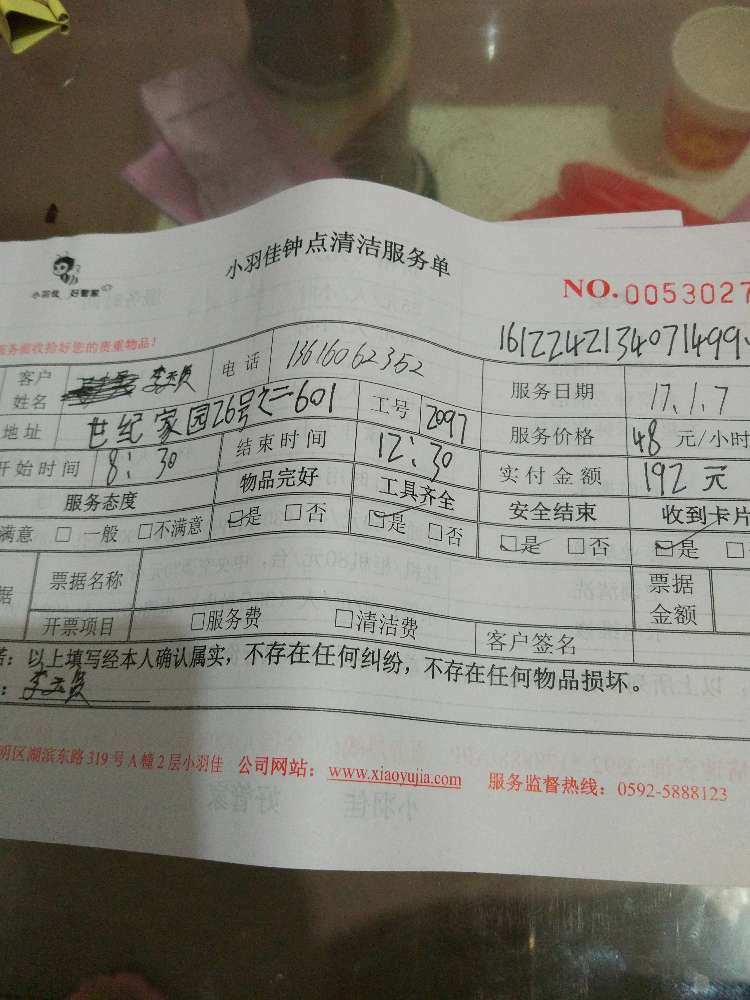 小羽佳钟点清洁服务单
小羽佳 好管家
NO. 0053027
服务前收拾好您的贵重物品!
1612242134071499
客户姓名 李 电话 13616062352 服务日期 17.1.7
地址 世纪家园26号之二601 工号 2097 服务价格 48 元/小时
开始时间 8:30 结束时间 12:30 实付金额 192 元
服务态度 物品完好 工具齐全 安全结束 收到卡片
满意 □ 一般 □不满意 ☑是 □否 ☑是 □否 ☑是 □否 ☑是
票据名称 票据金额
开票项目 □服务费 □清洁费 客户签名
以上填写经本人确认属实,不存在任何纠纷,不存在任何物品损坏。
: 李
明区湖滨东路319号A幢2层小羽佳 公司网站:www.xiaoyujia.com 服务监督热线:0592-5888123